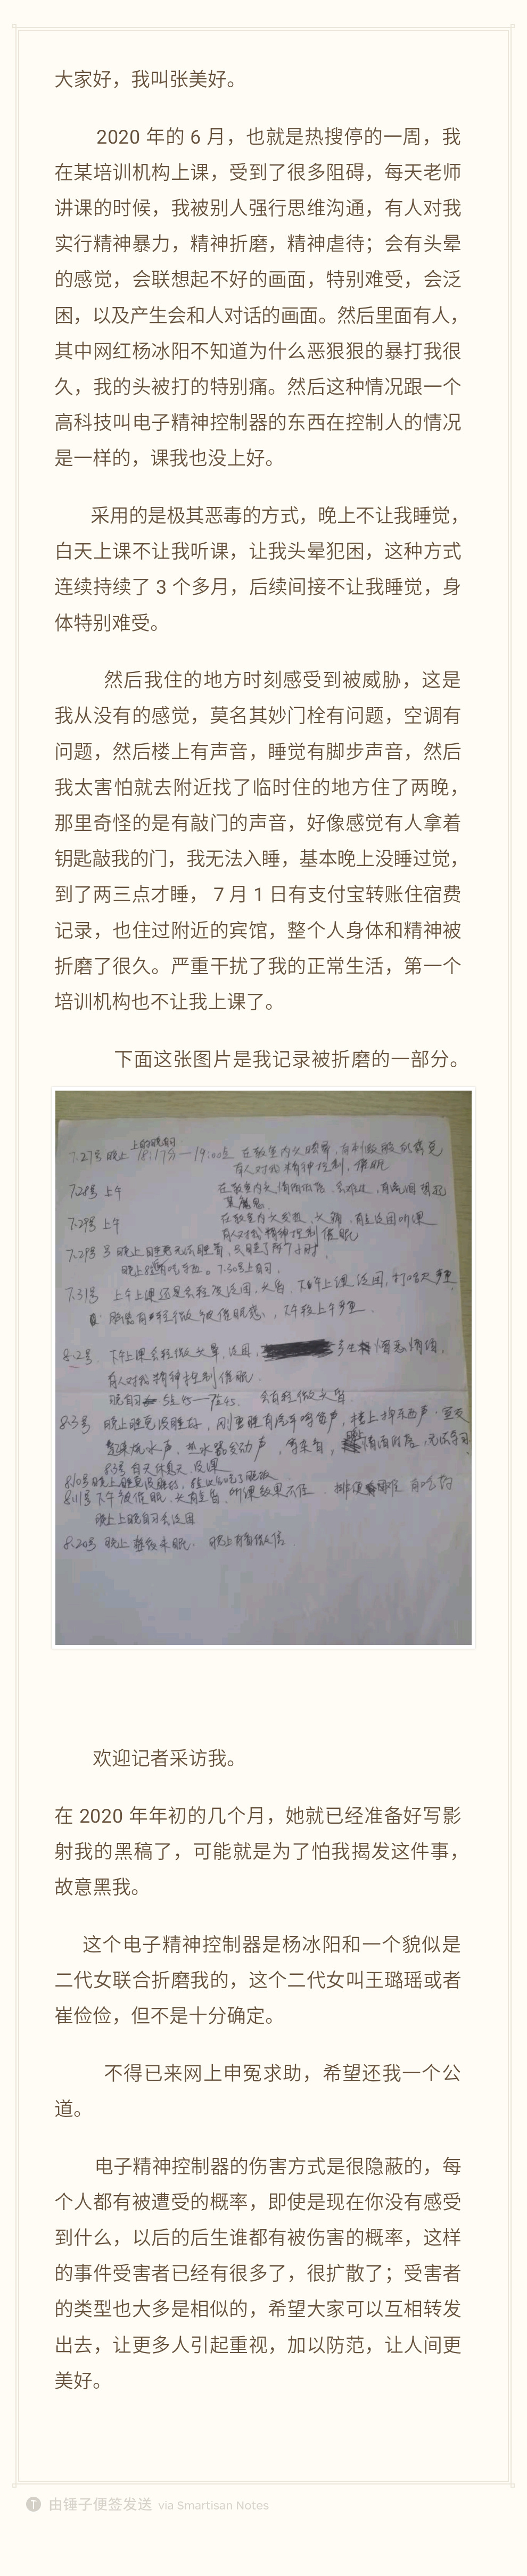 大家好，我叫张美好。
2020 年的 6 月，也就是热搜停的一周，我
在某培训机构上课，受到了很多阻碍，每天老师
讲课的时候，我被别人强行思维沟通，有人对我
实行精神暴力，精神折磨，精神虐待；会有头晕
的感觉，会联想起不好的画面，特别难受，会泛
困，以及产生会和人对话的画面。然后里面有人，
其中网红杨冰阳不知道为什么恶狠狠的暴打我很
久，我的头被打的特别痛。然后这种情况跟一个
高科技叫电子精神控制器的东西在控制人的情况
是一样的，课我也没上好。
采用的是极其恶毒的方式，晚上不让我睡觉，
白天上课不让我听课，让我头晕犯困，这种方式
连续持续了 3 个多月，后续间接不让我睡觉，身
体特别难受。
然后我住的地方时刻感受到被威胁，这是
我从没有的感觉，莫名其妙门栓有问题，空调有
问题，然后楼上有声音，睡觉有脚步声音，然后
我太害怕就去附近找了临时住的地方住了两晚，
那里奇怪的是有敲门的声音，好像感觉有人拿着
钥匙敲我的门，我无法入睡，基本晚上没睡过觉，
到了两三点才睡， 7 月 1 日有支付宝转账住宿费
记录，也住过附近的宾馆，整个人身体和精神被
折磨了很久。严重干扰了我的正常生活，第一个
培训机构也不让我上课了。
下面这张图片是我记录被折磨的一部分。
上的晚自习
7.27号 晚上 18:17分—19:00点 在教室内头晕
有人对我精神控制，催眠
7.28号 上午 在教室内
7.29号 上午 在教室内 有点泛困听课
有人对我精神控制 催眠
7.29号 晚上
7.31号 上午上课还是会轻度泛困，下午上课泛困，打哈欠
轻微被催眠感，下午较上午
8.2号 下午上课会轻微头晕，泛困，
有人对我精神控制催眠
晚自习 5点45—7点45 会有轻微头晕
8.3号 晚上睡觉没睡好，刚要睡有汽车鸣笛声，楼上掉东西声
烧水声，热水器发动声
8.3号 白天休息天，没课
8.10号晚上睡觉没睡好
8.11号 下午被催眠，听课效果不佳
晚上上晚自习会泛困
8.20号 晚上
欢迎记者采访我。
在 2020 年年初的几个月，她就已经准备好写影
射我的黑稿了，可能就是为了怕我揭发这件事，
故意黑我。
这个电子精神控制器是杨冰阳和一个貌似是
二代女联合折磨我的，这个二代女叫王璐瑶或者
崔俭俭，但不是十分确定。
不得已来网上申冤求助，希望还我一个公
道。
电子精神控制器的伤害方式是很隐蔽的，每
个人都有被遭受的概率，即使是现在你没有感受
到什么，以后的后生谁都有被伤害的概率，这样
的事件受害者已经有很多了，很扩散了；受害者
的类型也大多是相似的，希望大家可以互相转发
出去，让更多人引起重视，加以防范，让人间更
美好。
T 由锤子便签发送 via Smartisan Notes